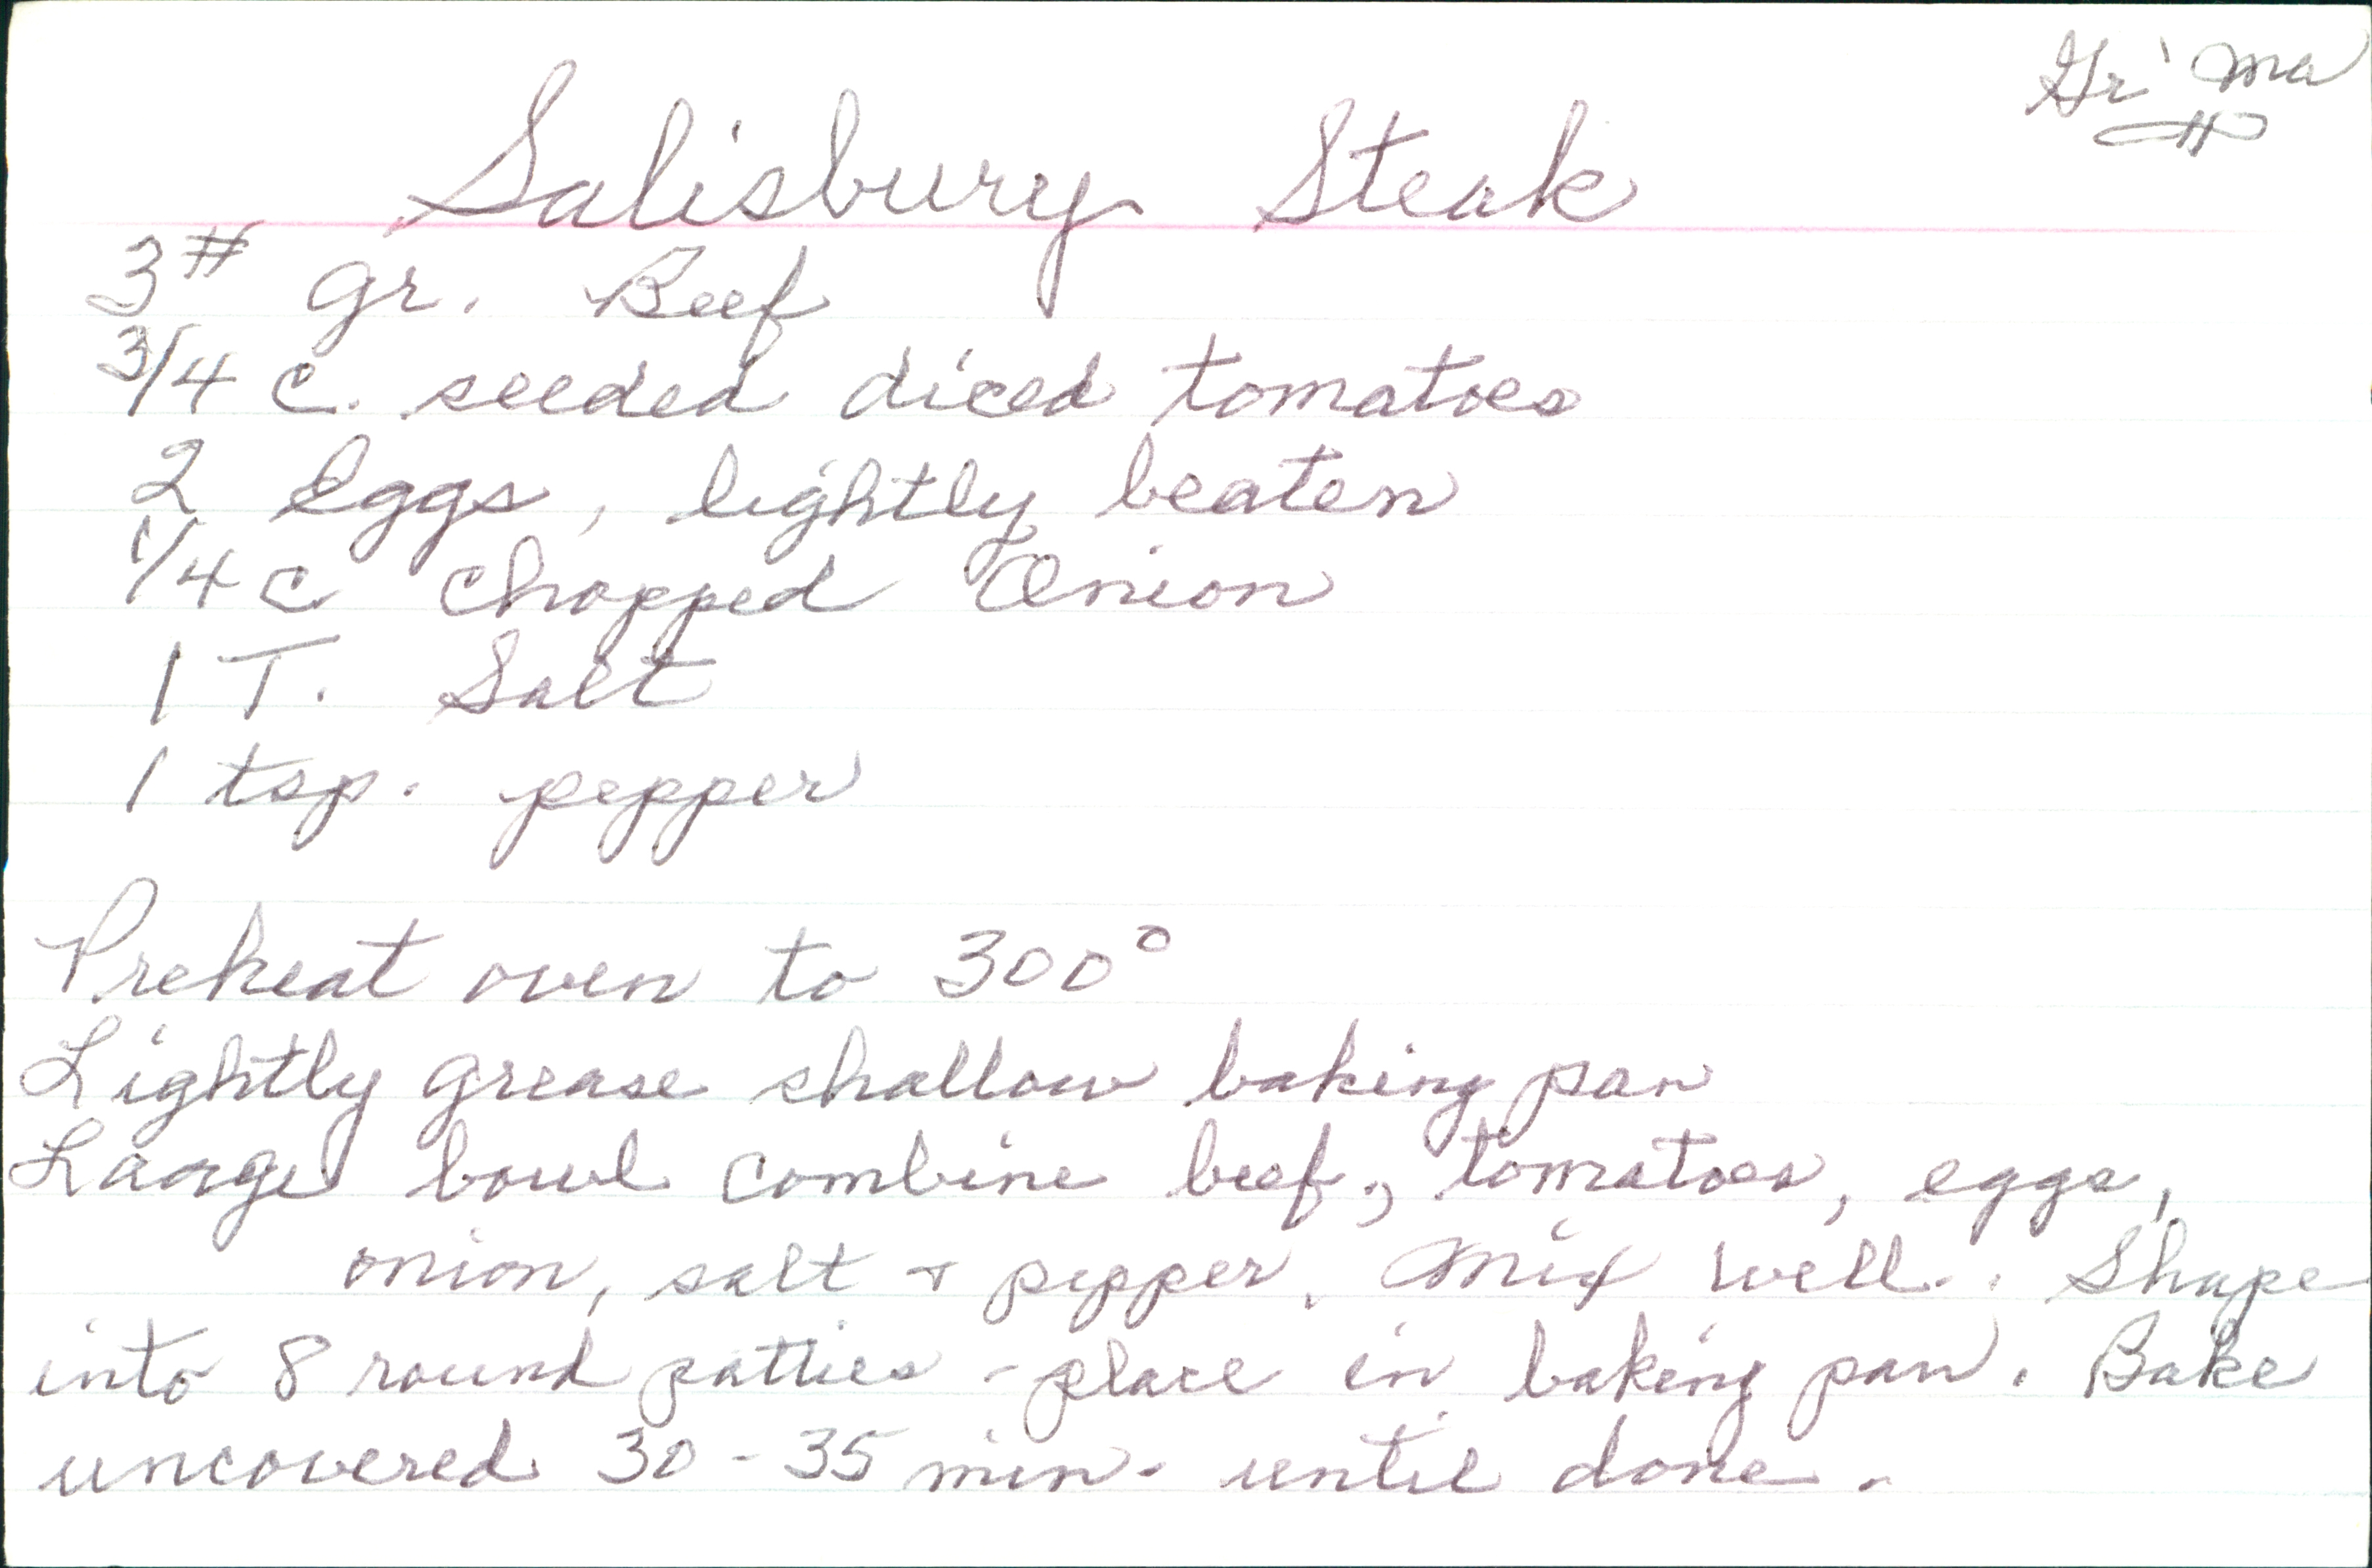 Gr' ma
Salisbury Steak
3# gr. Beef
3/4 c. seeded diced tomatoes
2 Eggs, lightly beaten
1/4 c chopped Onion
1 T. Salt
1 tsp. pepper
Preheat oven to 300°
Lightly grease shallow baking pan
Large bowl combine beef, tomatoes, eggs,
onion, salt + pepper. Mix well. Shape
into 8 round patties - place in baking pan. Bake
uncovered 30 - 35 min. until done.